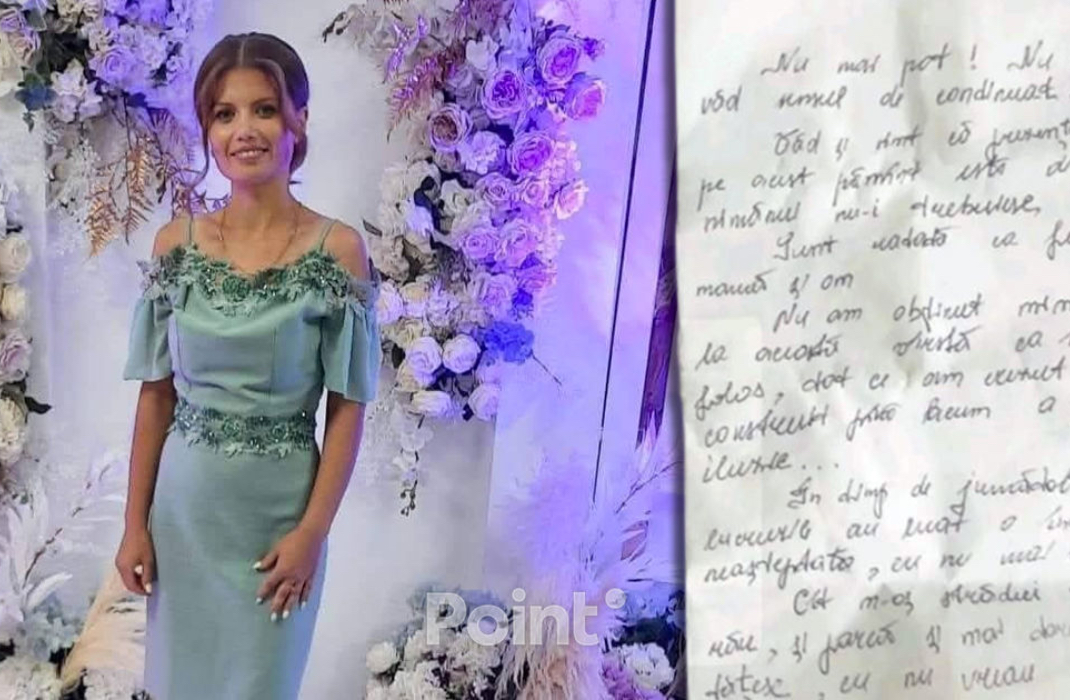 Nu mai pot! Nu
văd sensul de continuat
Văd și simt că
pe acest pământ este
nimănui nu-i trebuiesc,
Sunt ratată ca
mamă și om
Nu am obținut
la această vârstă ca
folos, tot ce am crezut
construit până acum a
iluzie...
În timp de
lucrurile au luat o
neașteptată, eu nu mai
Cât m-aș strădui
rău, și parcă și mai
eu nu vreau
Point